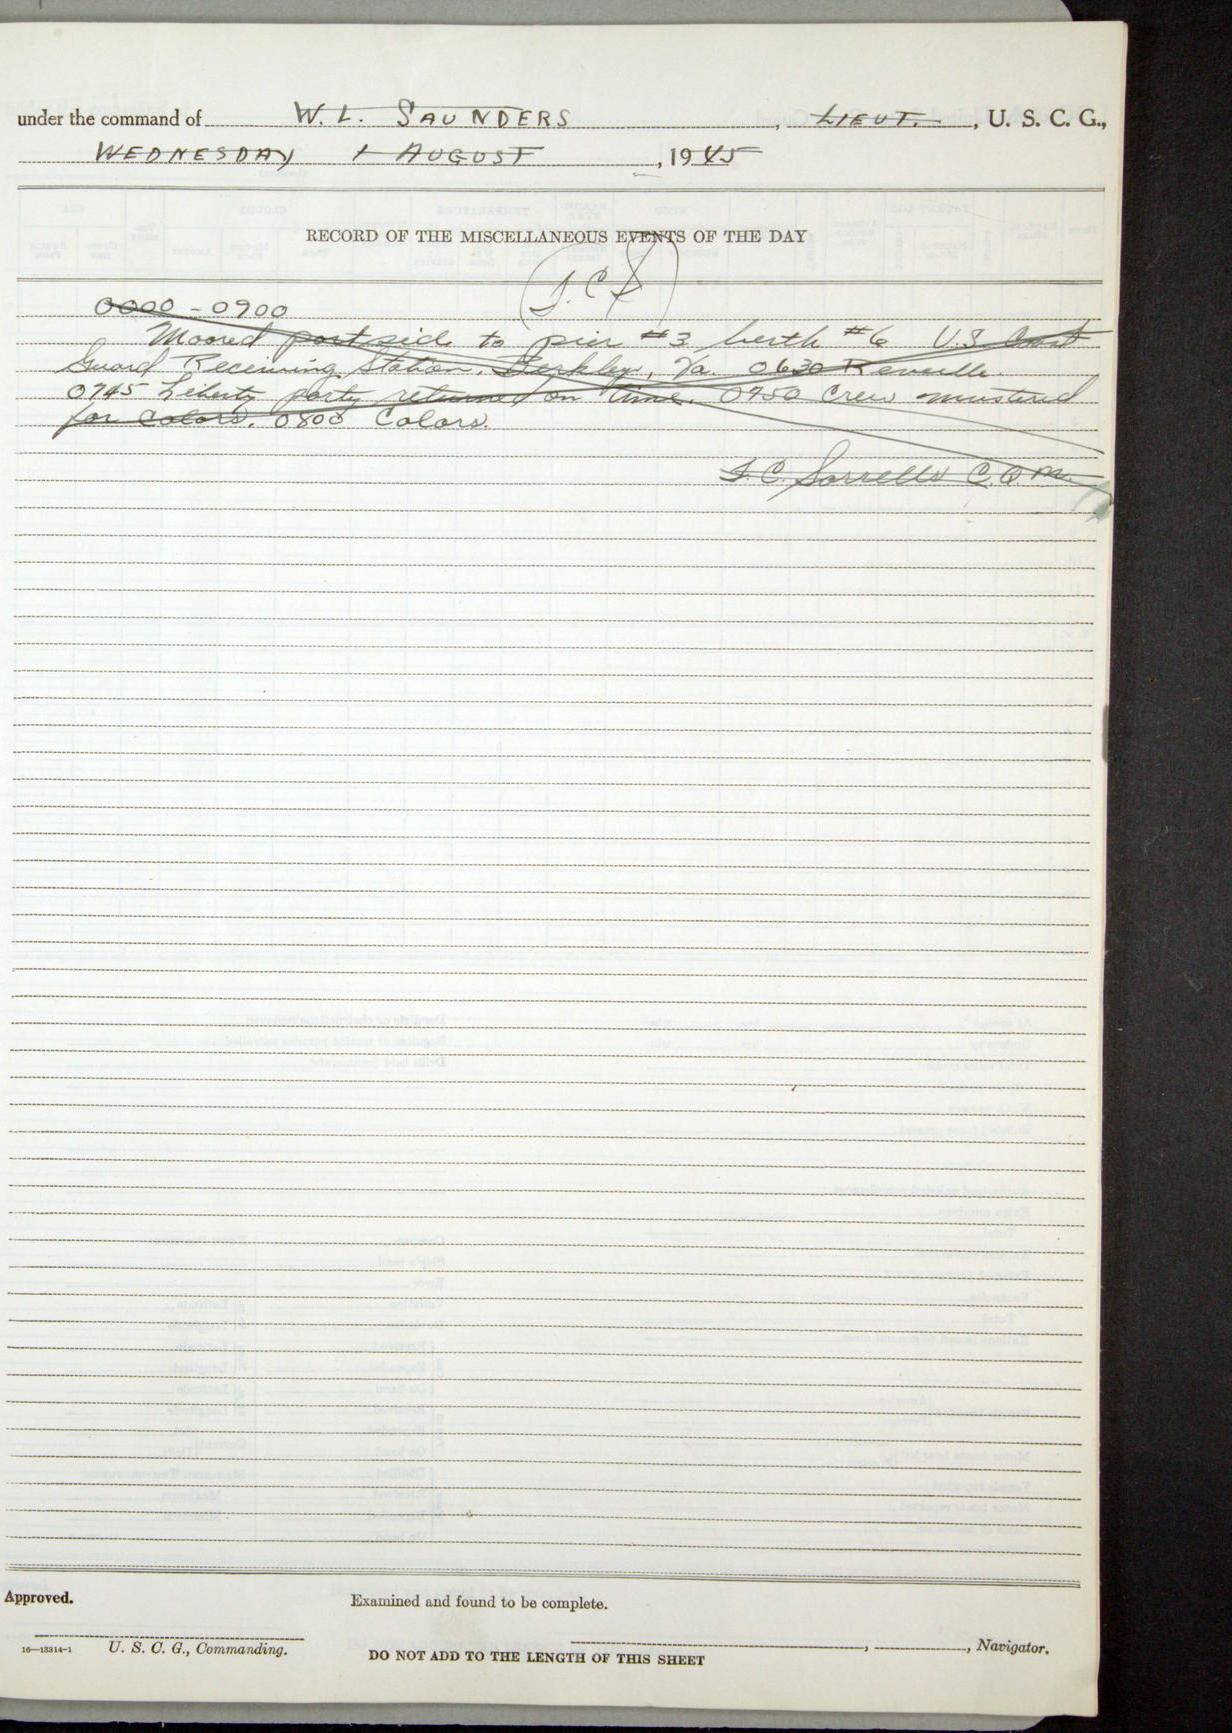 under the command of W. L. SAUNDERS, LIEUT., U. S. C. G.,
WEDNESDAY 1 AUGUST, 1945
RECORD OF THE MISCELLANEOUS EVENTS OF THE DAY
0000 - 0900
Moored port side to pier #3 berth #6 U.S. Coast
Guard Receiving Station, Berkley, Va. 0630 Reveille.
0745 Liberty party returned on time. 0750 Crew mustered
for colors. 0800 Colors.
C. Sorrells C.Q.M.
Approved.
Examined and found to be complete.
16—13314-1 U. S. C. G., Commanding.
, , Navigator.
DO NOT ADD TO THE LENGTH OF THIS SHEET